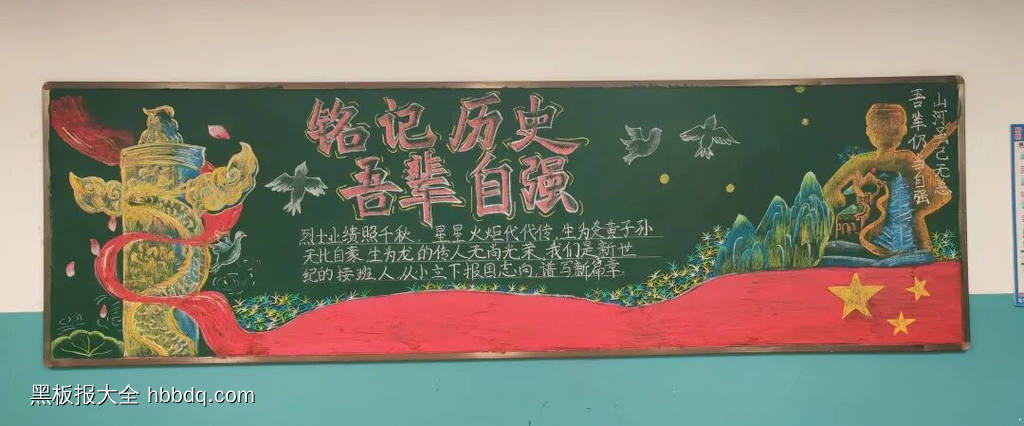 铭记历史
吾辈自强
烈士业绩照千秋,星星火炬代代传,生为炎黄子孙
无比自豪,生为龙的传人无尚光荣,我们是新世
纪的接班人,从小立下报国志向,谱写新篇章
山河已无恙
吾辈仍当自强
黑板报大全 hbbdq.com